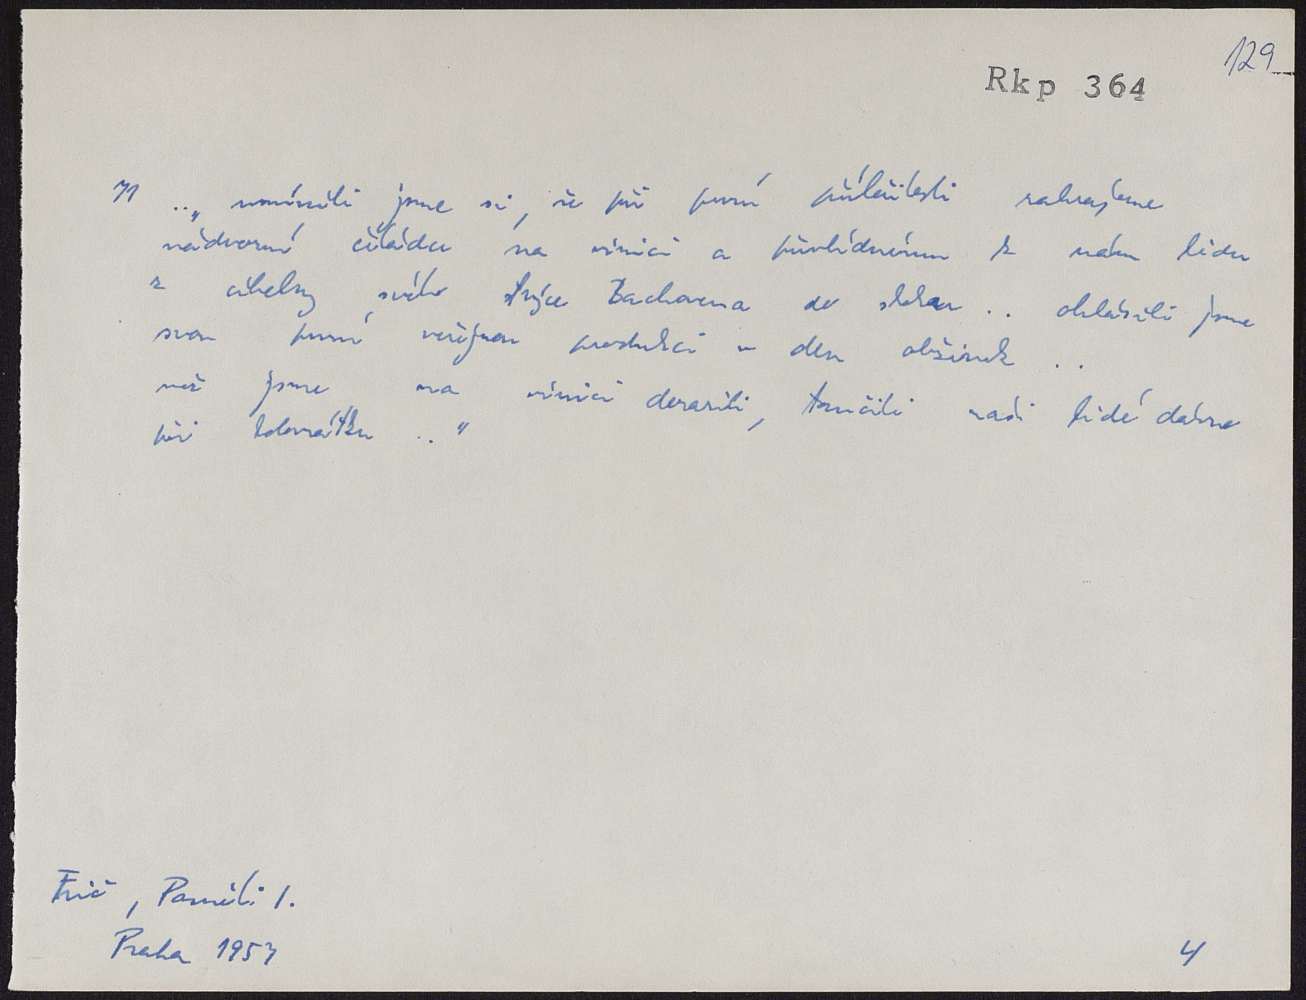 129
Rkp 364
71 .. „ umínili jsme si, že při první příležitosti zahrajeme
nádvorní čeládce na vinici a přihlédnuvšímu k nám lidu
z cihelny svého strýce Bachovena do skoku .. ohlásili jsme
svou první veřejnou produkci v den obžinek ..
než jsme na vinici dorazili, tančili naši lidé dávno
při kolovrátku .. "
Frič, Paměti I.
Praha 1957
4